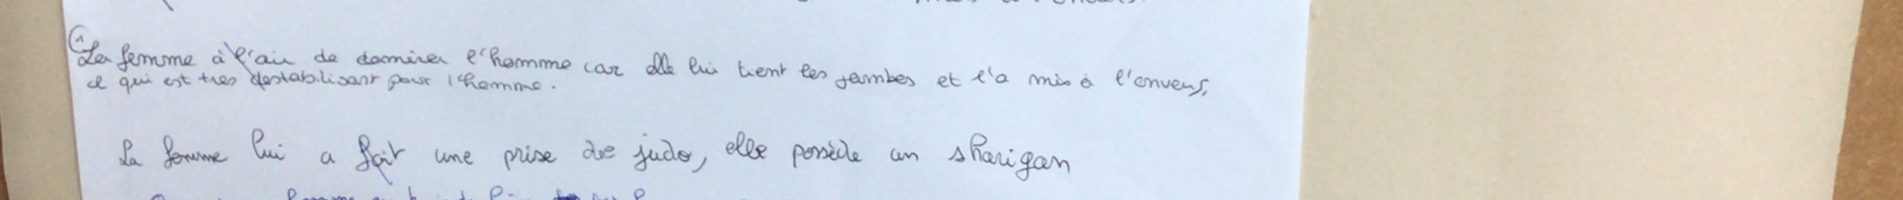 La femme à l'air de dominer l'homme car elle lui tient les jambes et l'a mis à l'envers,
ce qui est très destabilisant pour l'homme.
La femme lui a fait une prise de judo, elle possède un sharigan